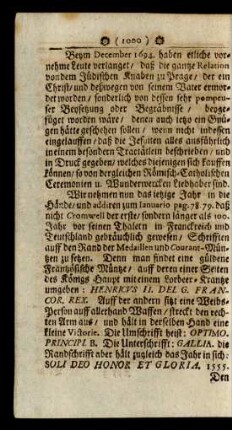 ( 1000 )
Beym December 1694. haben etliche vor-
nehme Leute verlanget / daß die gantze Relation
von dem Jüdischen Knaben zu Prage / der ein
Christ / und deßwegen von seinem Vater ermor-
det worden / sonderlich von dessen sehr pompeu-
ser Beysetzung oder Begräbnise / beyge-
füget worden wäre / denen auch jetzo ein Gnü-
gen hätte geschehen sollen / wenn nicht indessen
eingelauffen / daß die Jesuiten alles ausführlich
in einem besondern Tractätlein beschrieben / und
in Druck gegeben / welches diejenigen sich kauffen
können / so von dergleichen Römisch-Catholischen
Ceremonien u. Wunderwercken Liebhaber sind.
Wir nehmen nun das jetzige Jahr in die
Hände / und addiren zum Ianuario pag. 78. 79. daß
nicht Cromwell der erste / sondern länger als 100.
Jahr vor seinen Thalern in Franckreich und
Teutschland gebräuchlich gewesen / Schrifften
auff den Rand der Medaillen und Courant-Mün-
tzen zu setzen. Denn man findet eine güldene
Frantzösische Müntze / auff deren einer Seiten
des Königs Haupt mit einem Lorbeer-Krantze
umgeben : HENRICVS II. DEI G. FRAN-
COR. REX. Auff der andern sitzt eine Weibs-
Person auff allerhand Waffen / streckt den rech-
ten Arm aus / und hält in derselben Hand eine
kleine Victorie. Die Umschrifft heist: OPTIMO.
PRINCIPI. B. Die Unterschrifft: GALLIA. die
Randschrifft aber hält zugleich das Jahr in sich:
SOLI DEO HONOR ET GLORIA. 1555.
Den